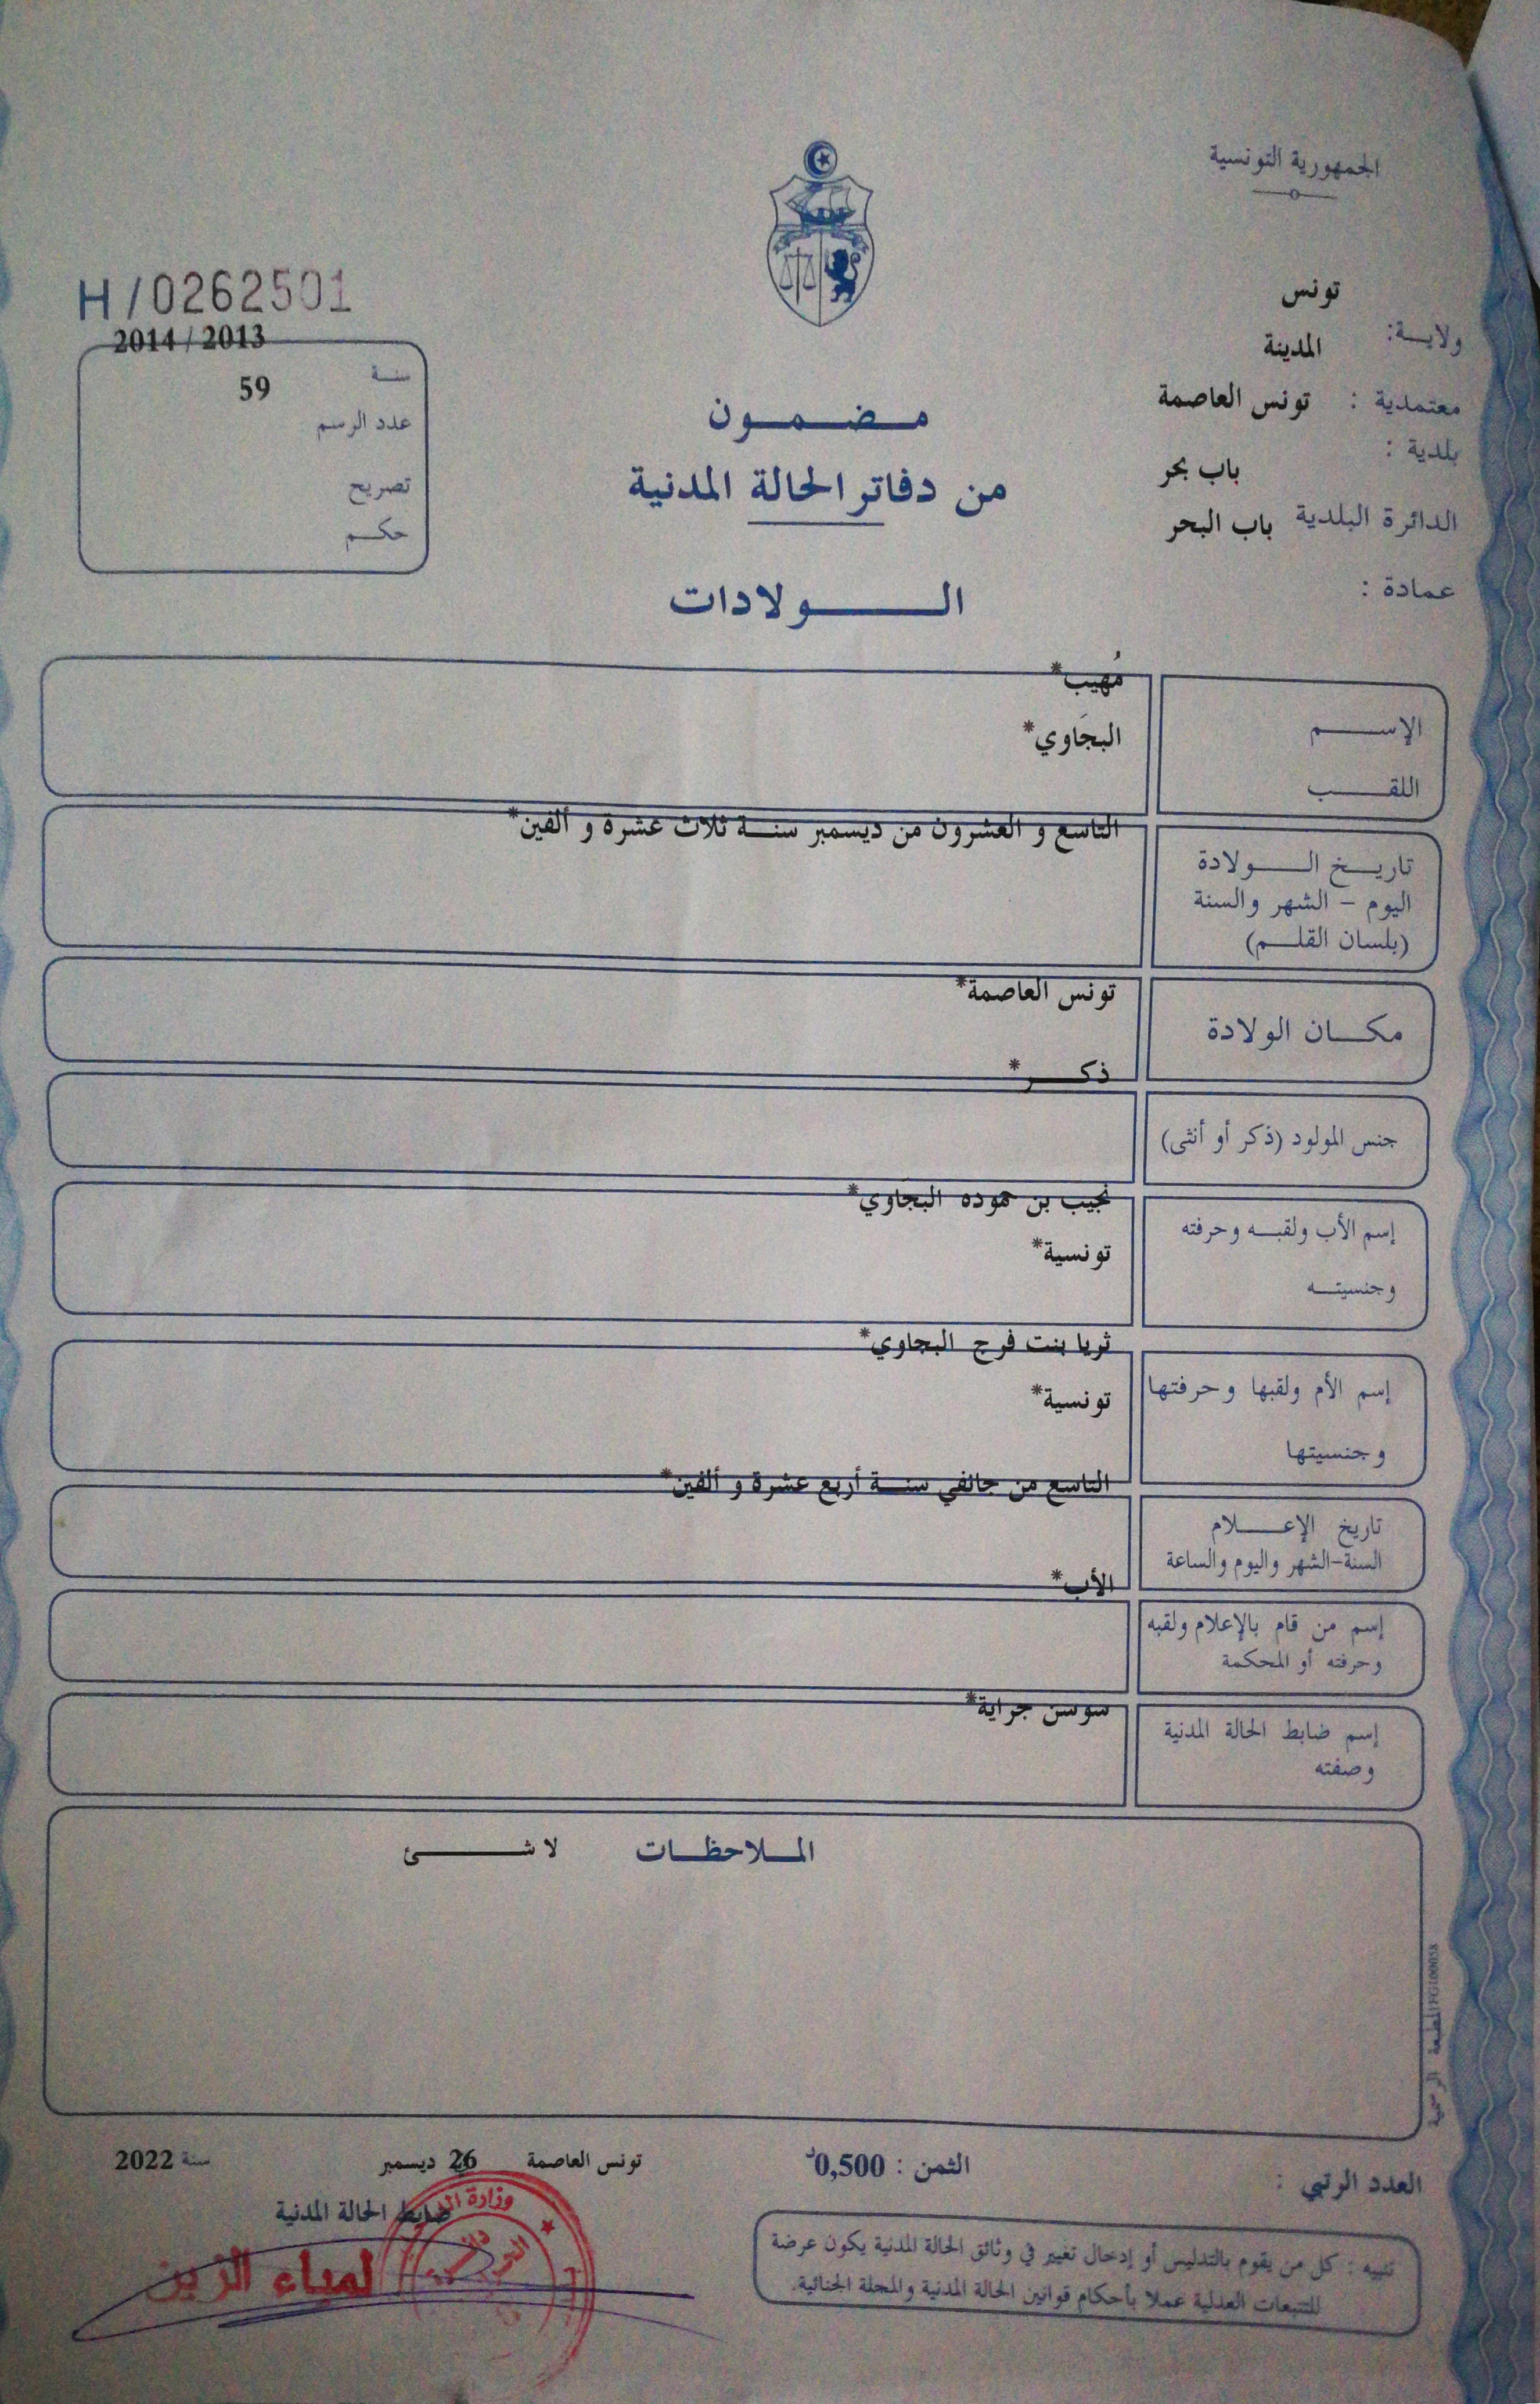 الجمهورية التونسية
تونس
ولايـــة:
المدينة
معتمدية : تونس العاصمة
بلدية :
باب بحر
الدائرة البلدية باب البحر
عمادة :
H/0262501
2014 / 2013
سنـــة
59
عدد الرسم
تصريح
حكـــم
مـــضـــمـــون
من دفاتر الحالة المدنية
الـــــولادات
مُهيب*
الإســـــم
البجَاوي*
اللقـــــب
التاسع و العشرون من ديسمبر سنـــة ثلاث عشرة و ألفين*
تاريـــخ الـــــولادة
اليوم – الشهر والسنة
(بلسان القلـــم)
تونس العاصمة*
مكـــان الولادة
ذكـــر*
جنس المولود (ذكر أو أنثى)
نجيب بن حموده البجَاوي*
إسم الأب ولقبـــه وحرفته
تونسية*
وجنسيتـــه
ثريا بنت فرج البجاوي*
إسم الأم ولقبها وحرفتها
تونسية*
وجنسيتها
التاسع من جانفي سنـــة أربع عشرة و ألفين*
تاريخ الإعـــــلام
السنة-الشهر واليوم والساعة
الأب*
إسم من قام بالإعلام ولقبه
وحرفته أو المحكمة
سوسن جراية*
إسم ضابط الحالة المدنية
وصفته
المـــلاحظـــات لا شـــــئ
المطبعة الرسمية
العدد الرتبي :
الثمن : 0,500د
تونس العاصمة 26 ديسمبر سنة 2022
ضابط الحالة المدنية
وزارة
لمياء الزين
تنبيه : كل من يقوم بالتدليس أو إدخال تغيير في وثائق الحالة المدنية يكون عرضة
للتتبعات العدلية عملا بأحكام قوانين الحالة المدنية والمجلة الجنائية.